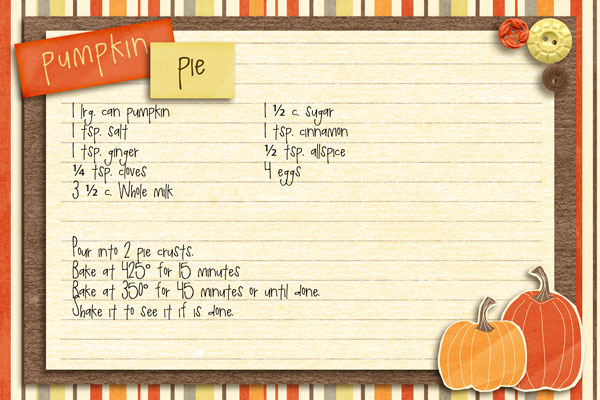 pumpkin
pie
1 lrg. can pumpkin
1 tsp. salt
1 tsp. ginger
¼ tsp. cloves
3 ½ c. Whole milk
1 ½ c. sugar
1 tsp. cinnamon
½ tsp. allspice
4 eggs
Pour into 2 pie crusts.
Bake at 425° for 15 minutes
Bake at 350° for 45 minutes or until done.
Shake it to see it if is done.